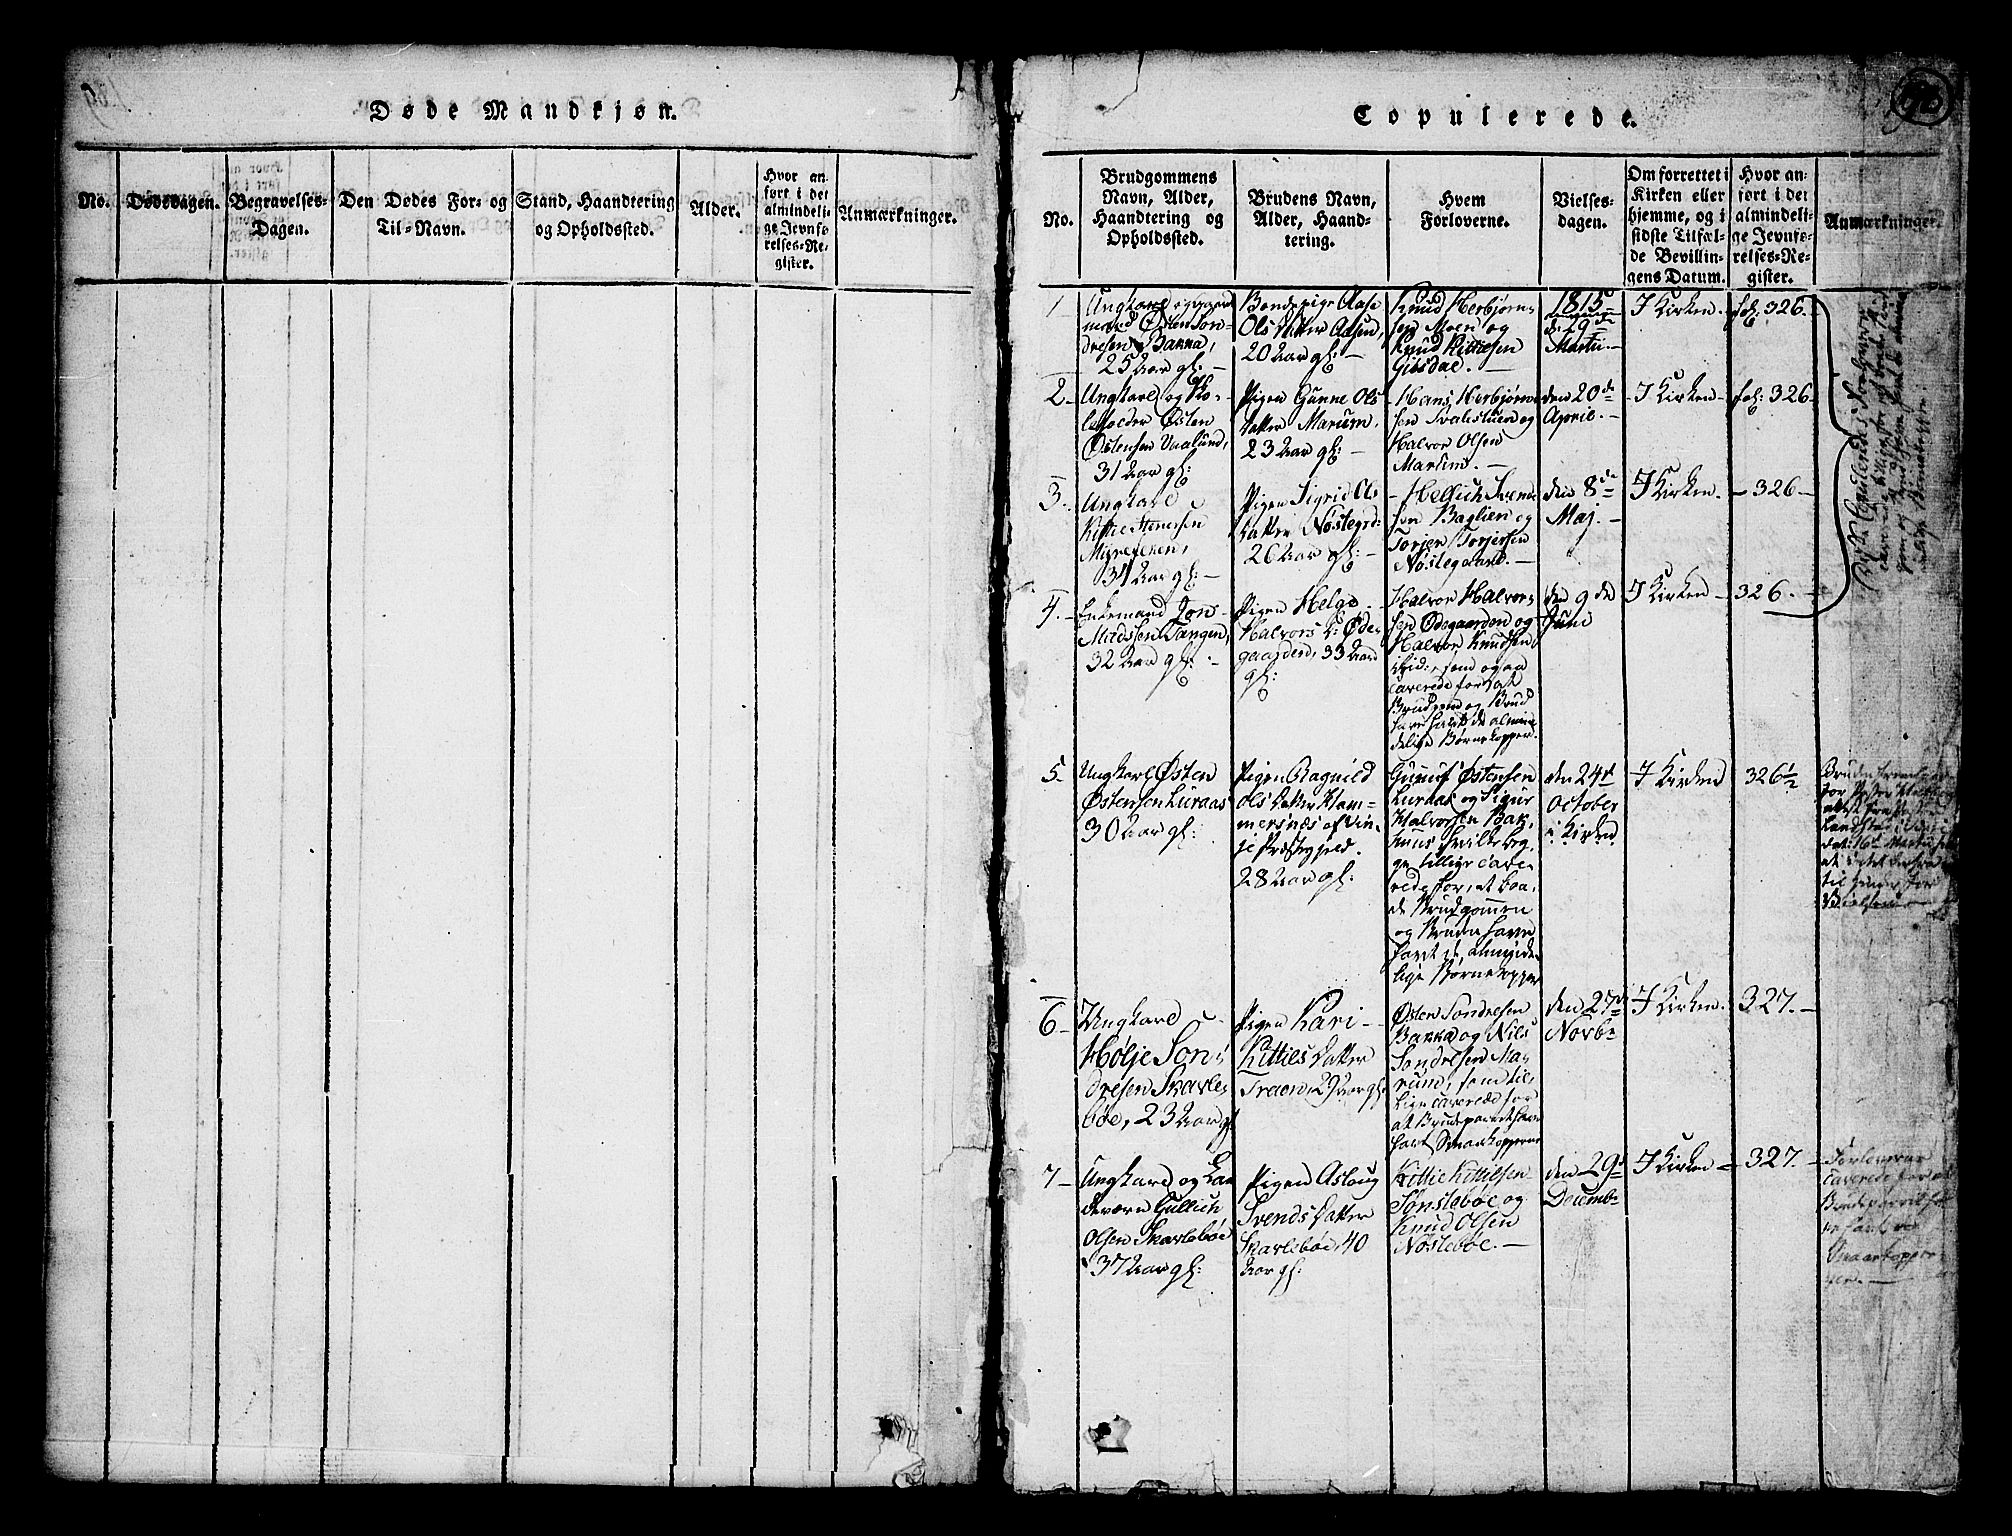 Døde Mandkjøn.
No.
Dødsdagen.
Begravelses-
Dagen.
Den Dødes For- og
Til-Navn.
Stand, Haandtering
og Opholdssted.
Alder.
Hvor an-
ført i det
almindeli-
ge Jevnfø-
relses-Re-
gister.
Anmærkninger.
Copulerede.
No.
Brudgommens
Navn, Alder,
Haandtering og
Opholdssted.
Brudens Navn,
Alder, Haand-
tering.
Hvem
Forloverne.
Vielses-
dagen.
Om forrettet i
Kirken eller
hjemme, og i
sidste Tilfæl-
de Bevillin-
gens Datum.
Hvor an-
ført i det
almindeli-
ge Jevnfø-
relses-Re-
gister.
Anmærkninger.
1
Ungkarl og gaard
mand Østen Son-
dresen Bakka,
25 Aar gl: -
Bondepige Aase
Ols Datter Aasen,
20 Aar gl: -
Knud Herbjørn-
sen Moen og
Knud Kittilsen
Gibsdal. -
1815
d: 29de
Martii. -
I Kirken.
fol: 326.
2
Ungkarl og
Østen
Østensen Vaalund,
31 Aar gl:
Pigen Gunne Ols
Datter Marium,
23 Aar gl: -
Hans Herbjørn-
sen Svalestuen og
Halvor Olsen
Marium. -
den 20de
April. -
I Kirken
fol: 326
3.
Ungkarl
Kittil Steners̈en
34 Aar gl: -
Pigen Sigrid Ols
Datter Nøstegrd:
26 Aar gl: -
Svend
sen Baglien og
Torjer Torjersen
Nøstegaard. -
den 8de
Maj. -
I Kirken.
- 326 -
4.
Enkemand Jon
Madssen Tangen,
32 Aar gl: -
Pigen Helge
Halvors D: Øde-
gaarden, 33 Aar
gl:
Halvor Halvor-
sen Ødegaarden og
Halvor Knudsen
ibid:, som ogsaa
caverede for, at
Brudgom og Brud
have havt de almin-
delige Børnekopper.
den 9de
Juni
I Kirken -
326. -
5.
Ungkarl Østen
Østensen Luraas
30 Aar gl:
Pigen Ragnild
Ols Datter Ham-
mersnæs af Vin-
je Præstegjeld.
28 Aar gl:
Gunuf Østensen
Luraas og Sigur
Halvorsen Bak-
huus, hvilke beg-
ge tillige cave-
rede for, at baa-
de Brudgommen
og Bruden have
havt de alminde-
lige Børnekopper
den 24de
October
i Kirken
I Kirken
326½
6
Ungkarl
Hølje Son-
dresen Skarle-
bøe, 23 Aar gl
Pigen Kari
Kittils Datter
Traen, 29 Aar gl:
Østen Sondresen
Bakka og Nils
Sondresen Ma-
rium, som til-
lige caverede for
at Brudeparret have
havt Smaakopperne
den 27de
Novbr
I Kirken.
327. -
7
Ungkarl og Lan
deværn Gullick
Olsen Skarlebøe
37 Aar gl:
Pigen Aslaug
Svends Datter
Skarlebøe, 40
Aar gl:
Kittil Kittilsen
Sønstebøe og
Knud Olsen
Nøstebøe. -
den 29de
Decembr
I Kirken -
327. -
Forloverne
caverede for at
Brudeparret ha-
ve havt
Smaakopper-
ne. -